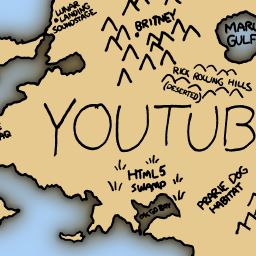 LUNAR
LANDING
SOUNDSTAGE
BRITNEY
MARI
GULF
RICK ROLLING HILLS
(DESERTED)
YOUTUB
AQ
HTML5
SWAMP
PRARIE DOG
HABITAT